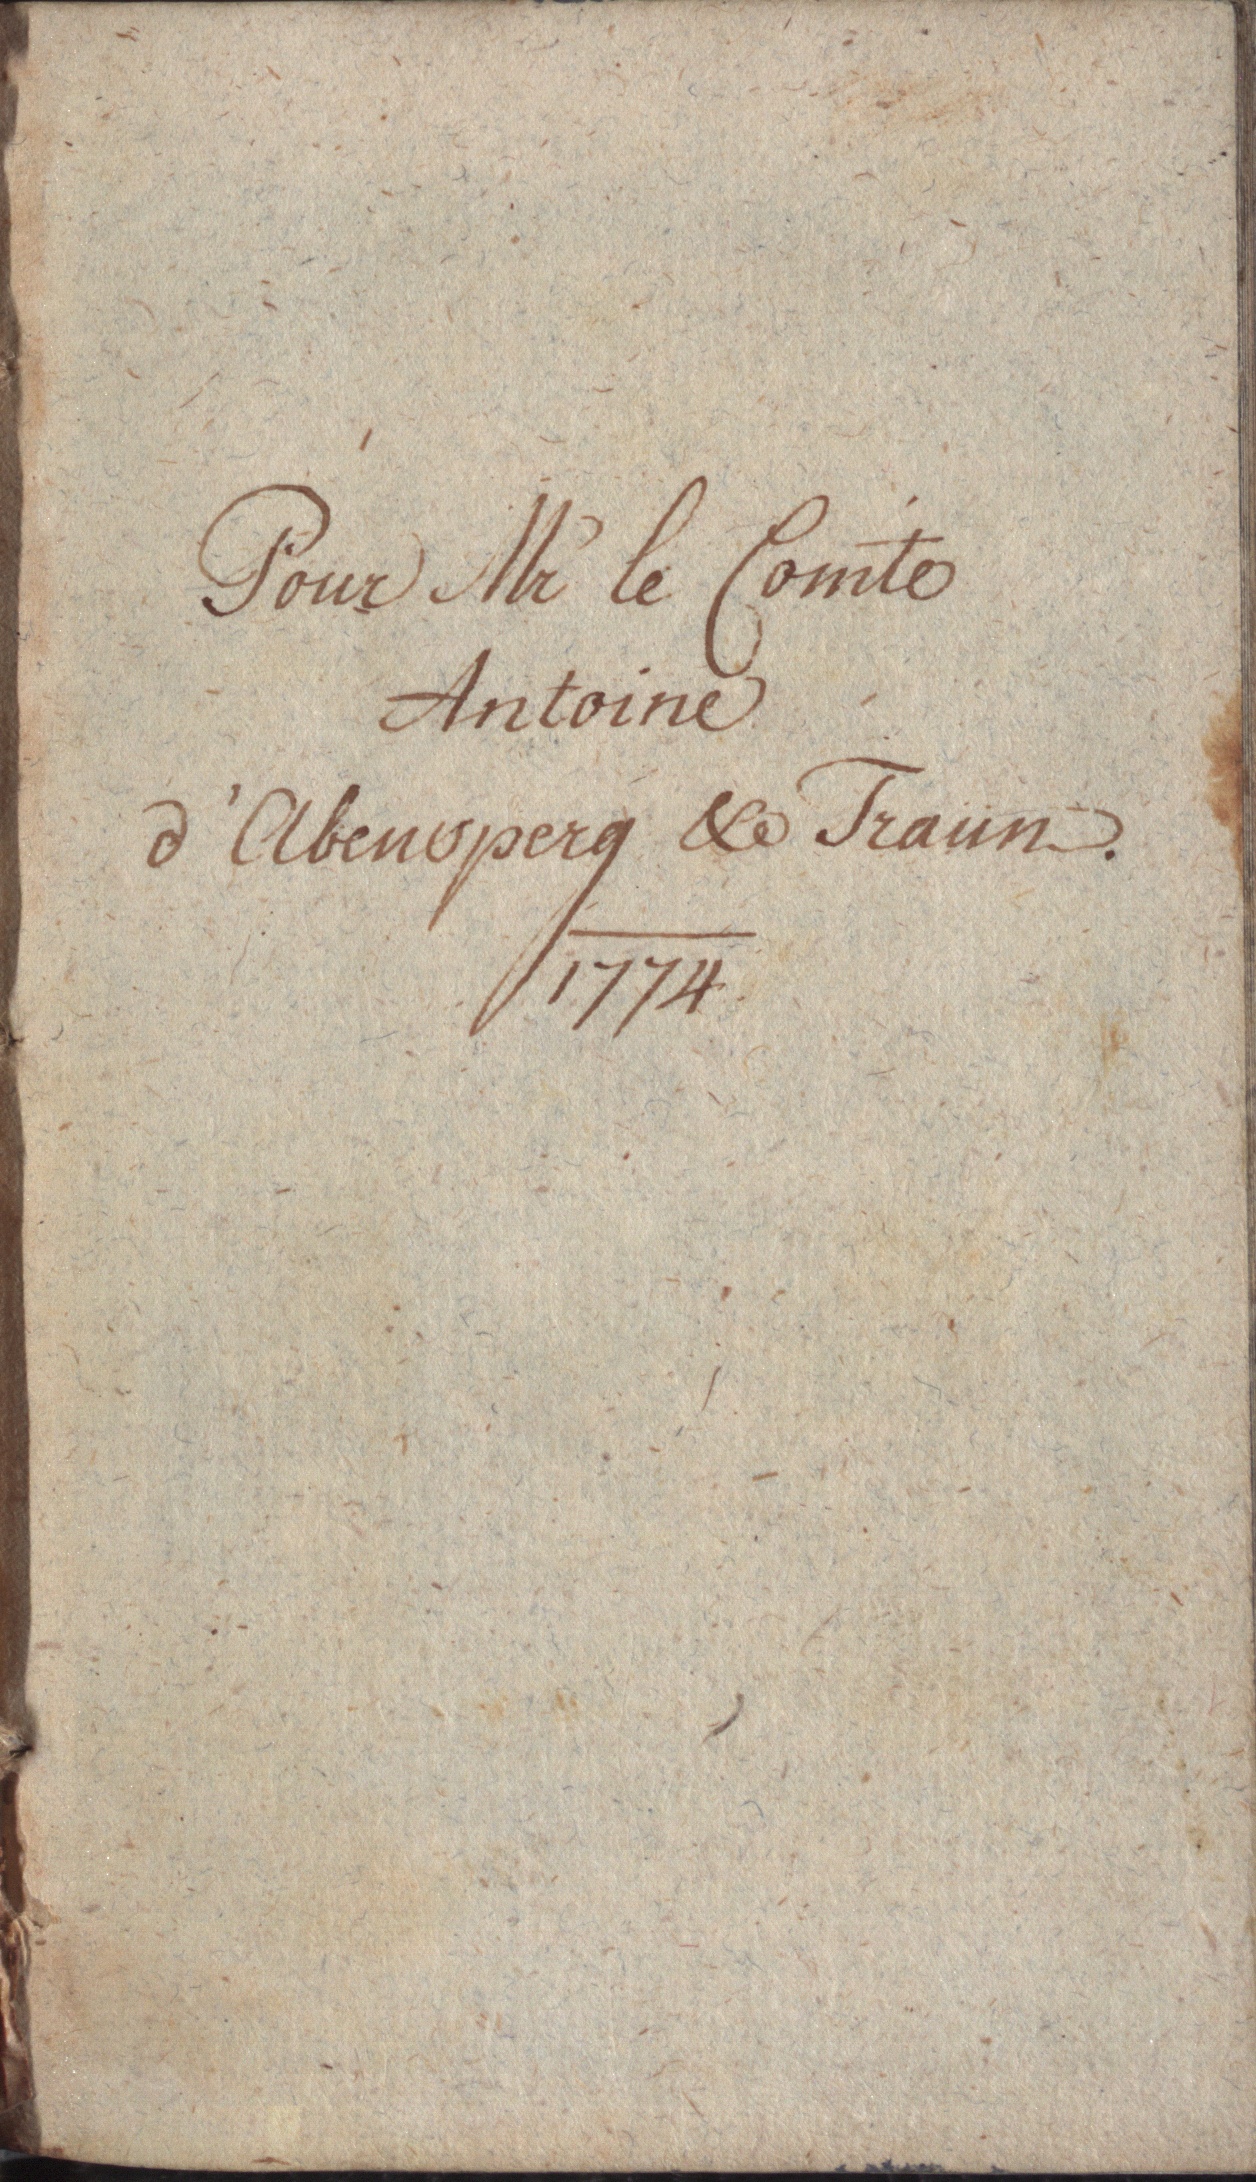 Pour Mr le Comte
Antoine
d'Abensperg & Traun.
1774